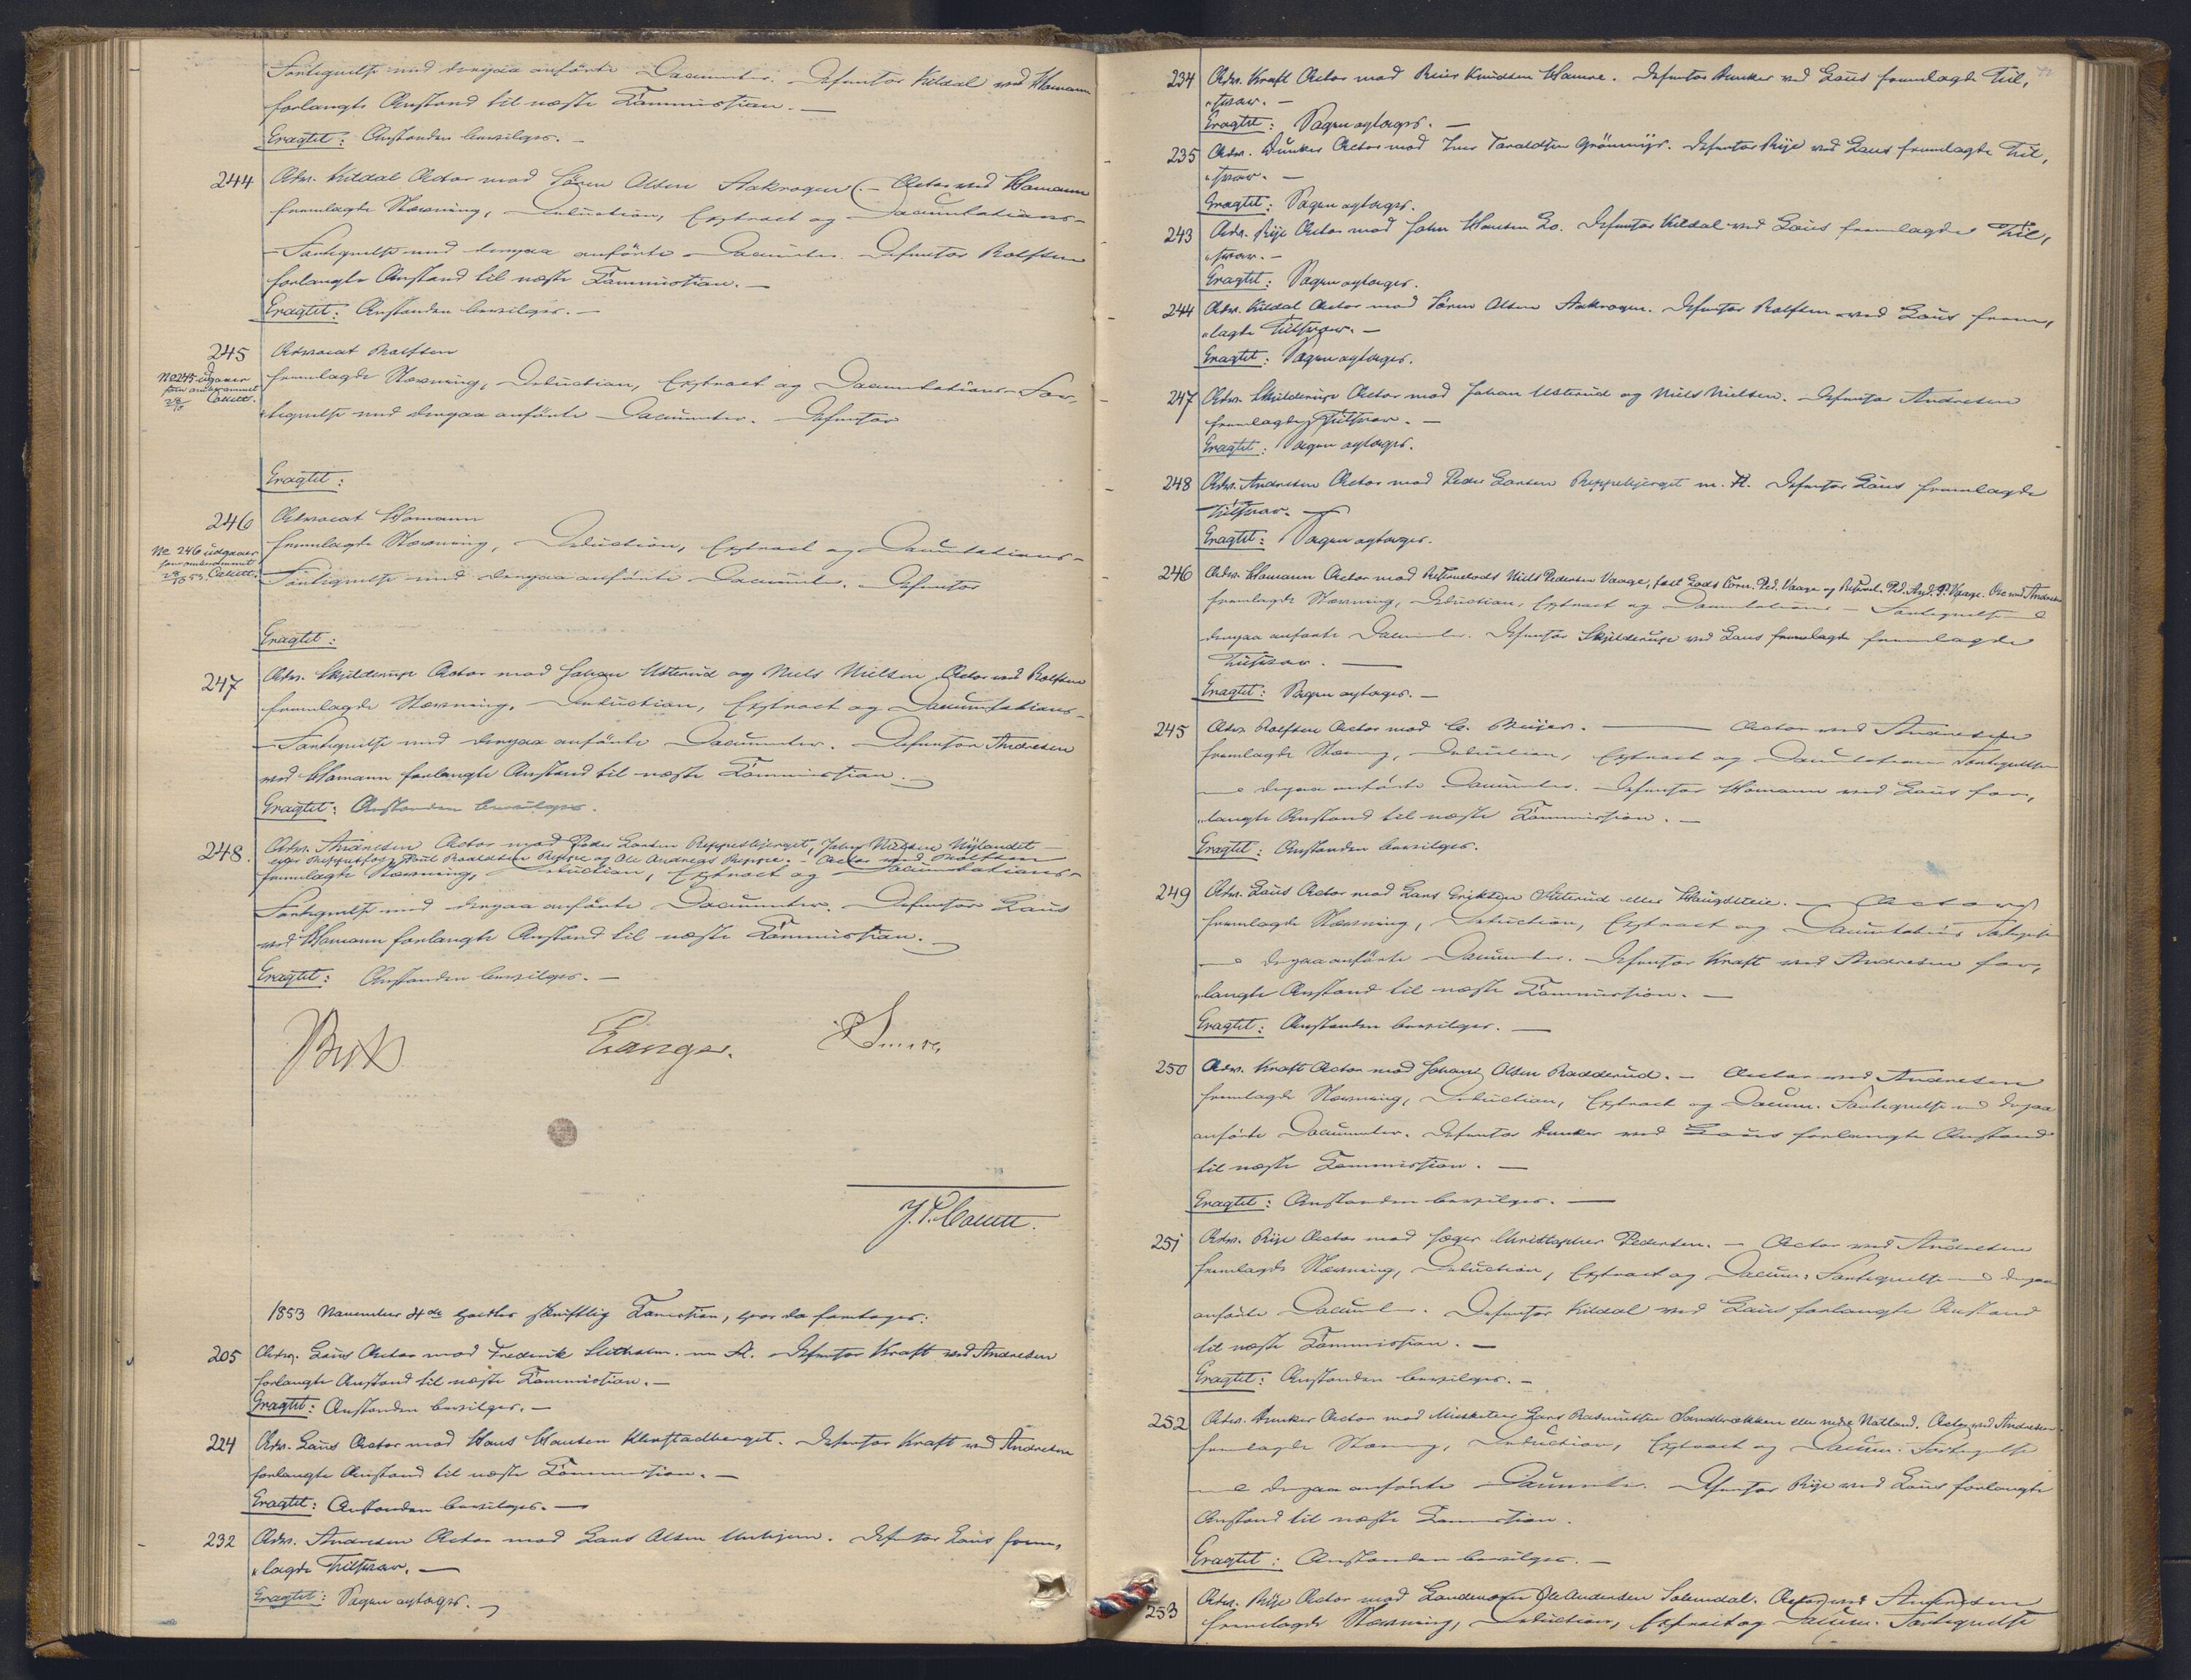 Fortegnelse med deri paaanførte Documenter. Defensor Kildal ved Homann
forlangte Anstand til næste Session.
Eragtet: Anstanden bevilges. –
244 Adv. Kildal Actor mod Sören Olsen Aakrogen. – Actor ved Homann
fremlagde Stævning, Deduction, Extract og Documentations-
Fortegnelse med derpaa anførte Documenter. Defensor Rolfsen
forlangte Anstand til næste
Eragtet: Anstanden bevilges. –
245 Advocat Rolfsen
No 245 udgaaer
som
Collett.
fremlagde Stævning, Deduction, Extract og Documentations-For,
tegnelse med derpaa anførte Documenter. Defensor
Eragtet:
246 Advocat Homann
No 246 udgaaer
Collett.
fremlagde Stævning, Deduction, Extract og Documentations-
Fortegnelse med derpaa anførte Documenter. Defensor
Eragtet:
247 Adv. Skjilderup Actor mod Johan Usterud og Niels Nielsen Actor ved Rolfsen
fremlagde Stævning, Deduction, Extract og Documentations-
Fortegnelse med derpaa anførte Documenter. Defensor Andresen
ved Homann forlangte Anstand til næste
Eragtet: Anstanden bevilges.
248. Adv. Andresen Actor mod Peder Larsen Reppesbjerget, John Nielsen Nylandet
eller Poul Reppe og Ole Andreas Reppe. – Actor ved Rolfsen
fremlagde Stævning, Deduction, Extract og Documentations-
Fortegnelse med derpaa anførte Documenter. Defensor Laus
ved Homann forlangte Anstand til næste
Eragtet: Anstanden bevilges. –
Manger.
1853 November 4de holdtes skriftlig, hvor da foretoges:
205 Adv. Laus Actor mod Frederik m. Fl. Defensor Kraft ved Andresen
forlangte Anstand til næste
Eragtet: Anstanden bevilges. –
224 Adv. Laus Actor mod Hans Hansen Klevstadberget. Defensor Kraft ved Andresen
forlangte Anstand til næste
Eragtet: Anstanden bevilges. –
232 Adv. Andresen Actor mod Lars Olsen. Defensor Laus frem,
"lagde Tilsvar. –
Eragtet: Sagen optages. –
234 Adv. Kraft Actor mod Reier Knudsen Hamre. Defensor Dunker ved Laus fremlagde Til,
"svar. –
Eragtet: Sagen optages. –
235 Adv. Dunker Actor mod Iver Taraldsen Grönmyr. Defensor Rije ved Laus fremlagde Til,
"svar. –
Eragtet: Sagen optages.
243 Adv. Rije Actor mod John Hansen Lo. Defensor Kildal ved Laus fremlagde Til,
"svar. –
Eragtet: Sagen optages.
244 Adv. Kildal Actor mod Sören Olsen Aakrogen. Defensor Rolfsen ved Laus frem,
"lagde Tilsvar. –
Eragtet: Sagen optages.
247 Adv. Skjilderup Actor mod Johan Usterud og Niels Nielsen. Defensor Andresen
fremlagde Tilsvar. –
Eragtet: Sagen optages.
248 Adv. Andresen Actor mod Peder Larsen Reppesbjerget m. Fl. Defensor Laus fremlagde
Tilsvar. –
Eragtet: Sagen optages.
246 Adv. Homann Actor mod Niels Pedersen Vaage, fast Lods Corn. Ped. Vaage og Ped. And. P. Vaage. Andresen
fremlagde Stævning, Deduction, Extract og Documentations – Fortegnelse med
derpaa anførte Documenter. Defensor Skjilderup ved Laus fremlagde fremlagde
Tilsvar. –
Eragtet: Sagen optages. –
245 Adv. Rolfsen Actor mod C. Meijer. – Actor ved Andresen
fremlagde Stævning, Deduction, Extract og Documentations Fortegnelse
med derpaa anførte Documenter. Defensor Homann ved Laus for,
"langte Anstand til næste
Eragtet: Anstanden bevilges.
249 Adv. Laus Actor mod Lars Eriksen Sæterud eller Haugsteie. – Actor
fremlagde Stævning, Deduction, Extract og Documentations Fortegnelse
med derpaa anførte Documenter. Defensor Kraft ved Andresen for,
"langte Anstand til næste
Eragtet: Anstanden bevilges. –
250 Adv. Kraft Actor mod Johans Olsen Radderud. – Actor ved Andresen
fremlagde Stævning, Deduction, Extract og Docum. Fortegnelse med derpaa
anførte Documenter. Defensor Dunker ved Laus forlangte Anstand
til næste
Eragtet: Anstanden bevilges. –
251 Adv. Rije Actor mod Jæger Christopher Pedersen. – Actor ved Andresen
fremlagde Stævning, Deduction, Extract og Docum. Fortegnelse med derpaa
anførte Documenter. Defensor Kildal ved Laus forlangte Anstand
til næste
Eragtet: Anstanden bevilges. –
252 Adv. Dunker Actor mod Musketeer Lars Rasmussen Sandbrækken eller nedre Natland. Actor ved Andresen
fremlagde Stævning, Deduction, Extract og Docum. Fortegnelse
med derpaa anførte Documenter. Defensor Rije ved Laus forlangte
Anstand til næste
Eragtet: Anstanden bevilges. –
253 Adv. Rije Actor mod Ole Andersen Solemdal. Actor ved Andresen
fremlagde Stævning, Deduction, Extract og Docum. Fortegnelse